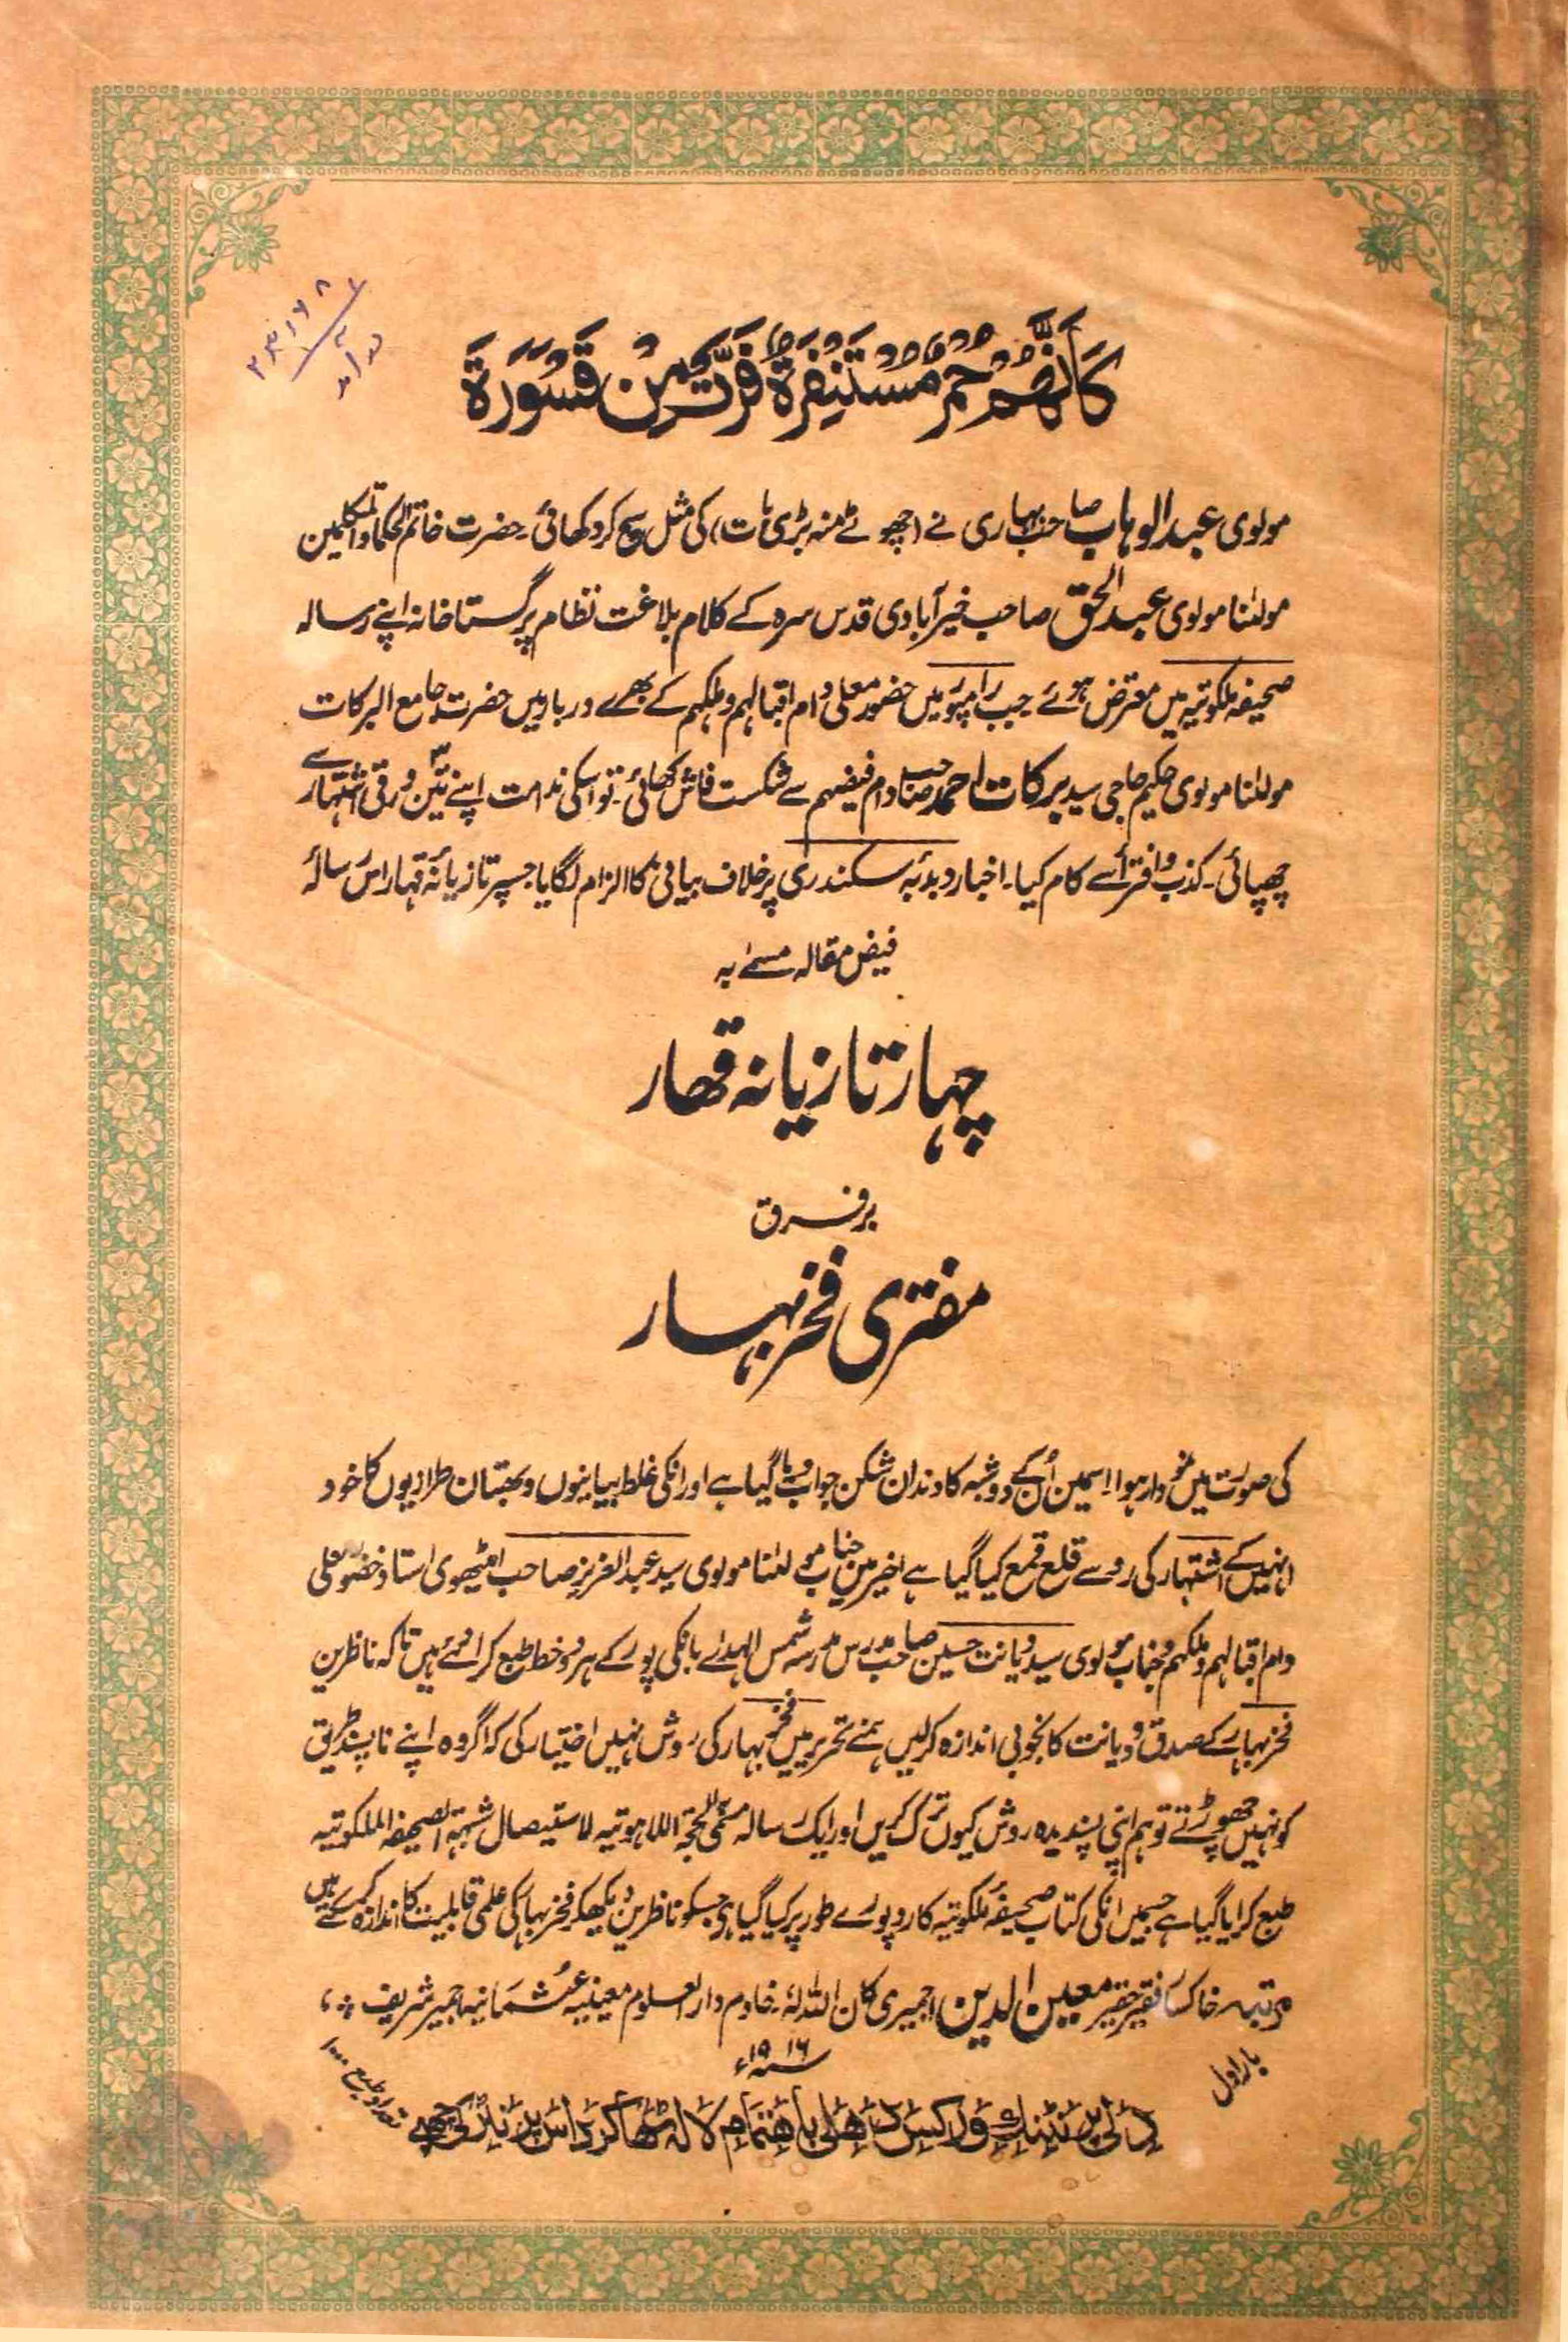 كَاَنَّهُمْ حُمُرٌ مُّسْتَنْفِرَةٌ فَرَّتْ مِنْ قَسْوَرَةٍ
مولوی عبدالوہاب صاحب بہاری نے (چھوٹے منہ بڑی بات) کی مثل سچ کر دکھائی۔ حضرت خاتم الحکما والمتکلمین
مولٰنا مولوی عبدالحق صاحب خیرآبادی قدس سرہ کے کلام بلاغت نظام پر گستاخانہ اپنے رسالہ
صحیفہ ملکوتیہ میں معترض ہوئے جب رامپور میں حضور معلی دام اقبالہم وملکہم کے بھرے دربار میں حضرت جامع البرکات
مولٰنا مولوی حکیم حاجی سید برکات احمد صاحب دام فیضہم سے شکست فاش کھائی۔ تو اسکی ندامت اپنے تین ورقی اشتہار سے
چھپائی۔ کذب وافترأ سے کام کیا۔ اخبار دبدبۂ سکندری پر خلاف بیانی کا الزام لگایا جسپر تازیانۂ قہار اس رسالۂ
فیض مقالہ مسمےٰ بہ
چہار تازیانہ قہار
بر فرق
مفتری فخر بہار
کی صورت میں نمودار ہوا۔ اسمین اُن کے دو شبہ کا دندان شکن جواب دیا گیا ہے اور انکی غلط بیانیوں و بہتان طرازیوں کا خود
انہیں کے اشتہار کی رو سے قلع قمع کیا گیا ہے اخیر میں جناب مولٰنا مولوی سید عبدالعزیز صاحب امیٹھوی استاذ حضور معلی
دام اقبالہم وملکہم وجناب مولوی سید دیانت حسین صاحب مدرس مدرسہ شمس الہدے بانکی پور کے ہر دو خط طبع کرائے ہیں تاکہ ناظرین
فخر بہار کے صدق و دیانت کا بخوبی اندازہ کرلیں ہمنے تحریر میں فخر بہار کی روش نہیں اختیار کی کہ اگر وہ اپنے ناپسند طریق
کو نہیں چھوڑتے تو ہم اپنی پسندیدہ روش کیوں ترک کریں اور ایک رسالہ مسمی الحجۃ اللاہوتیہ لاستیصال شبہۃ الصحیفہ الملکوتیہ
طبع کرایا گیا ہے جسمیں انکی کتاب صحیفۂ ملکوتیہ کا رد پورے طور پر کیا گیا ہی جسکو ناظرین دیکھکر فخر بہار کی علمی قابلیت کا اندازہ کرسکتے ہیں
مرتبہ خاکسار فقیر حقیر معین الدین اجمیری کان اللہ لہٗ۔ خادم دارالعلوم معینیہ عثمانیہ اجمیر شریف
بار اول
سنہ ۱۹۱۶ء
تعداد طبع ۱۰۰۰
دلی پرنٹنگ ورکس دہلی باہتمام لالہ ٹھاکرداس پرنٹر کی چھپی